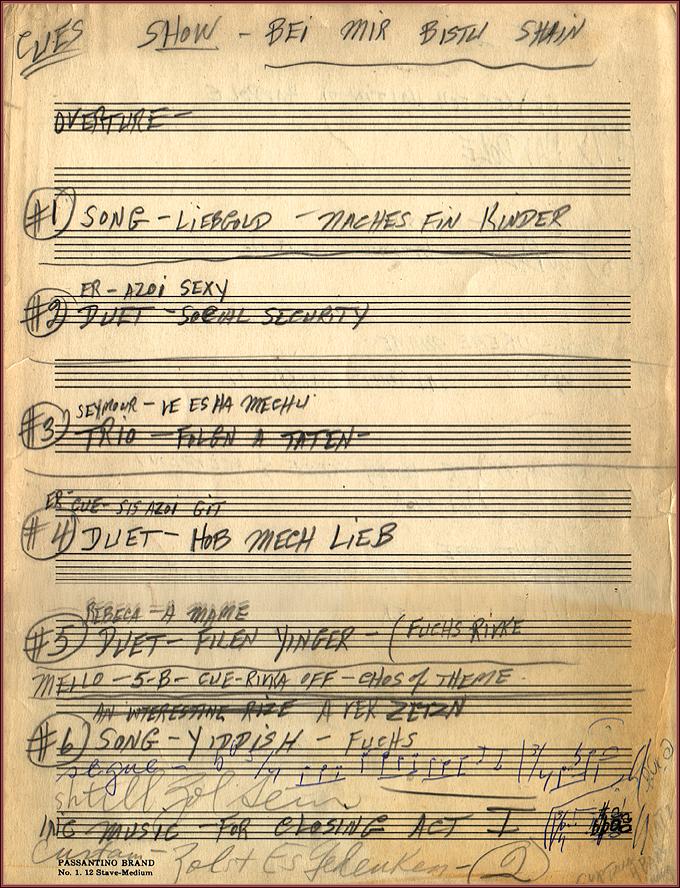 CUES SHOW - BEI MIR BISTU SHAIN
OVERTURE -
#1 SONG - LIEBGOLD - NACHES FIN KINDER
ER - AZOI SEXY
#2 DUET - SOCIAL SECURITY
SEYMOUR - VE ES HA MECHU
#3 TRIO - FOLGN A TATEN -
ER - CUE - SIS AZOI GIT
#4 DUET - HOB MECH LIEB
REBECA - A MAME
#5 DUET - FILEN YINGER - (FUCHS RIVKE
MELLO - 5-B - CUE - RIVKA OFF - CHOS OF THEME
AN INTERESTING RIZE A VEK ZETZN
#6 SONG - YIDDISH - FUCHS
segue -
shtill Zol Sein
ING MUSIC - FOR CLOSING ACT I
Curtain Zolst Es Gedenken - (2)
PASSANTINO BRAND
No. 1. 12 Stave-Medium